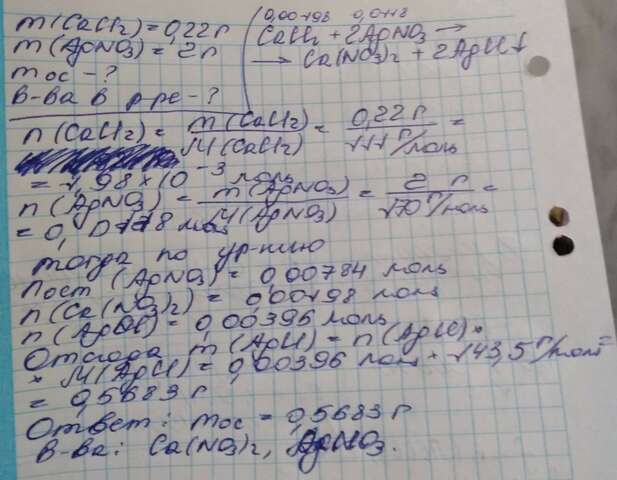 m(CaCl2) = 0,22 г
m(AgNO3) = 2 г
moc - ?
в-ва в р-ре - ?
0,00198 0,0118
CaCl2 + 2AgNO3 →
→ Ca(NO3)2 + 2AgCl↓
n(CaCl2) = m(CaCl2)/M(CaCl2) = 0,22 г/111 г/моль =
= 1,98 × 10^-3 моль
n(AgNO3) = m(AgNO3)/M(AgNO3) = 2 г/170 г/моль =
= 0,0118 моль
тогда по ур-нию
nост(AgNO3) = 0,00784 моль
n(Ca(NO3)2) = 0,00198 моль
n(AgCl) = 0,00396 моль
Отсюда m(AgCl) = n(AgCl) ×
× M(AgCl) = 0,00396 моль × 143,5 г/моль =
= 0,5683 г
Ответ: moc = 0,5683 г
в-ва: Ca(NO3)2, AgNO3.